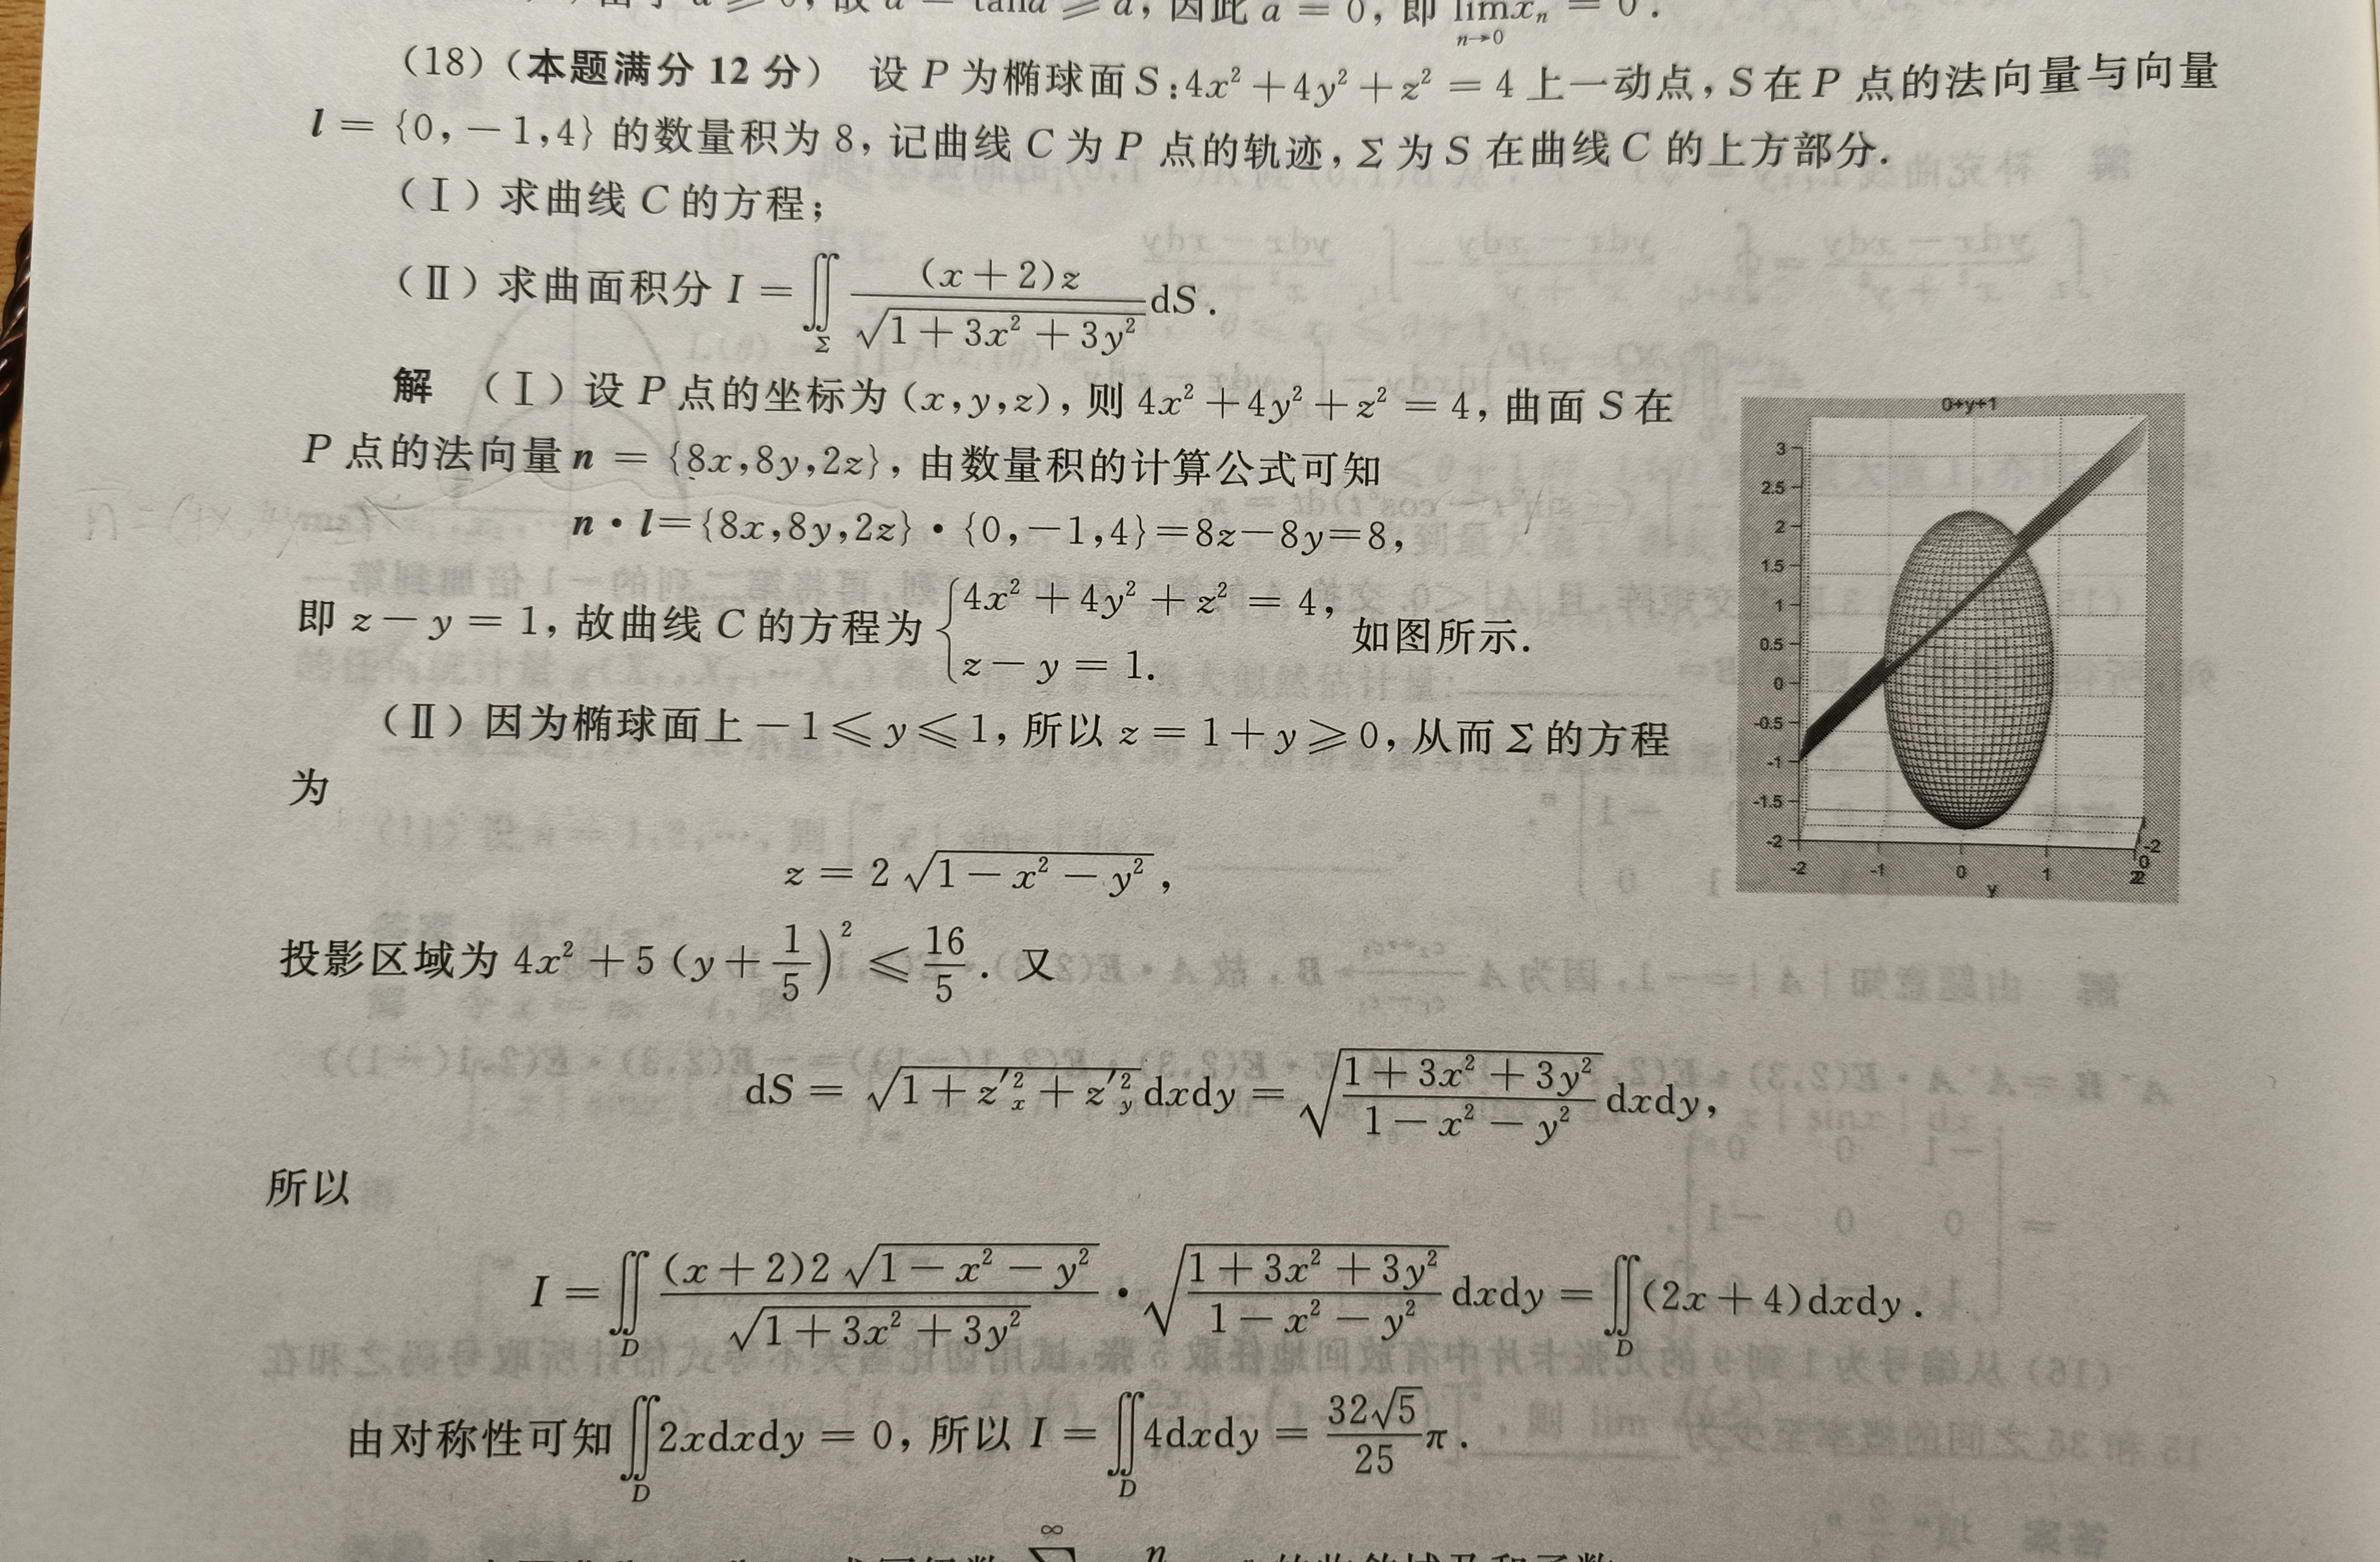 故 a = tana ⩾ a, 因此 a = 0, 即 lim x_n = 0.
n→0
(18)(本题满分 12 分) 设 P 为椭球面 S:4x²+4y²+z² = 4 上一动点, S 在 P 点的法向量与向量
l = {0,-1,4} 的数量积为 8, 记曲线 C 为 P 点的轨迹, Σ 为 S 在曲线 C 的上方部分.
(Ⅰ) 求曲线 C 的方程;
(Ⅱ) 求曲面积分 I = ∬_Σ (x+2)z / √(1+3x²+3y²) dS.
解 (Ⅰ) 设 P 点的坐标为 (x,y,z), 则 4x²+4y²+z² = 4, 曲面 S 在
P 点的法向量 n = {8x,8y,2z}, 由数量积的计算公式可知
n·l={8x,8y,2z}·{0,-1,4}=8z-8y=8,
即 z-y = 1, 故曲线 C 的方程为 { 4x²+4y²+z² = 4, z-y = 1. 如图所示.
(Ⅱ) 因为椭球面上 -1⩽y⩽1, 所以 z = 1+y⩾0, 从而 Σ 的方程
为
z = 2√(1-x²-y²),
投影区域为 4x²+5(y+1/5)² ⩽ 16/5. 又
dS = √(1+z'²_x+z'²_y) dxdy = √((1+3x²+3y²)/(1-x²-y²)) dxdy,
所以
I = ∬_D (x+2)2√(1-x²-y²) / √(1+3x²+3y²) · √((1+3x²+3y²)/(1-x²-y²)) dxdy = ∬_D (2x+4)dxdy.
由对称性可知 ∬_D 2xdxdy = 0, 所以 I = ∬_D 4dxdy = 32√5/25 π.
0+y+1
3
2.5
2
1.5
1
0.5
0
-0.5
-1
-1.5
-2
-2 -1 0 1 2
-2
0
2
y